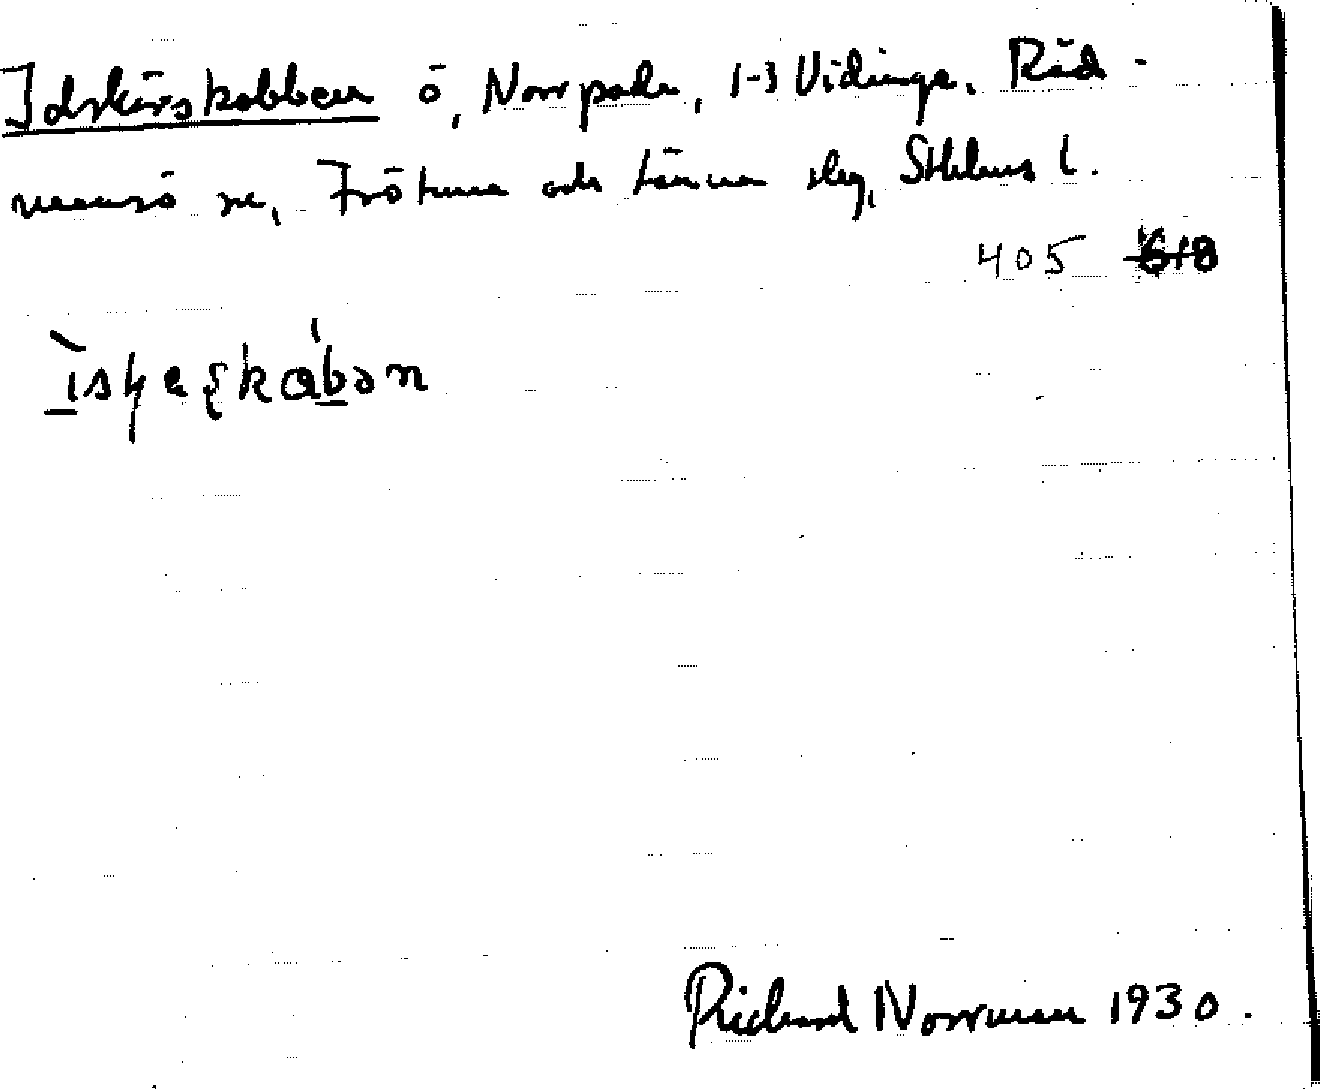 Idskärskobben ö, Norrpada, 1-3 Vidinge. Råd-
mansö sn, Frötuna och Länna slg, Sthlms l.
405
Richard Norrman 1930.